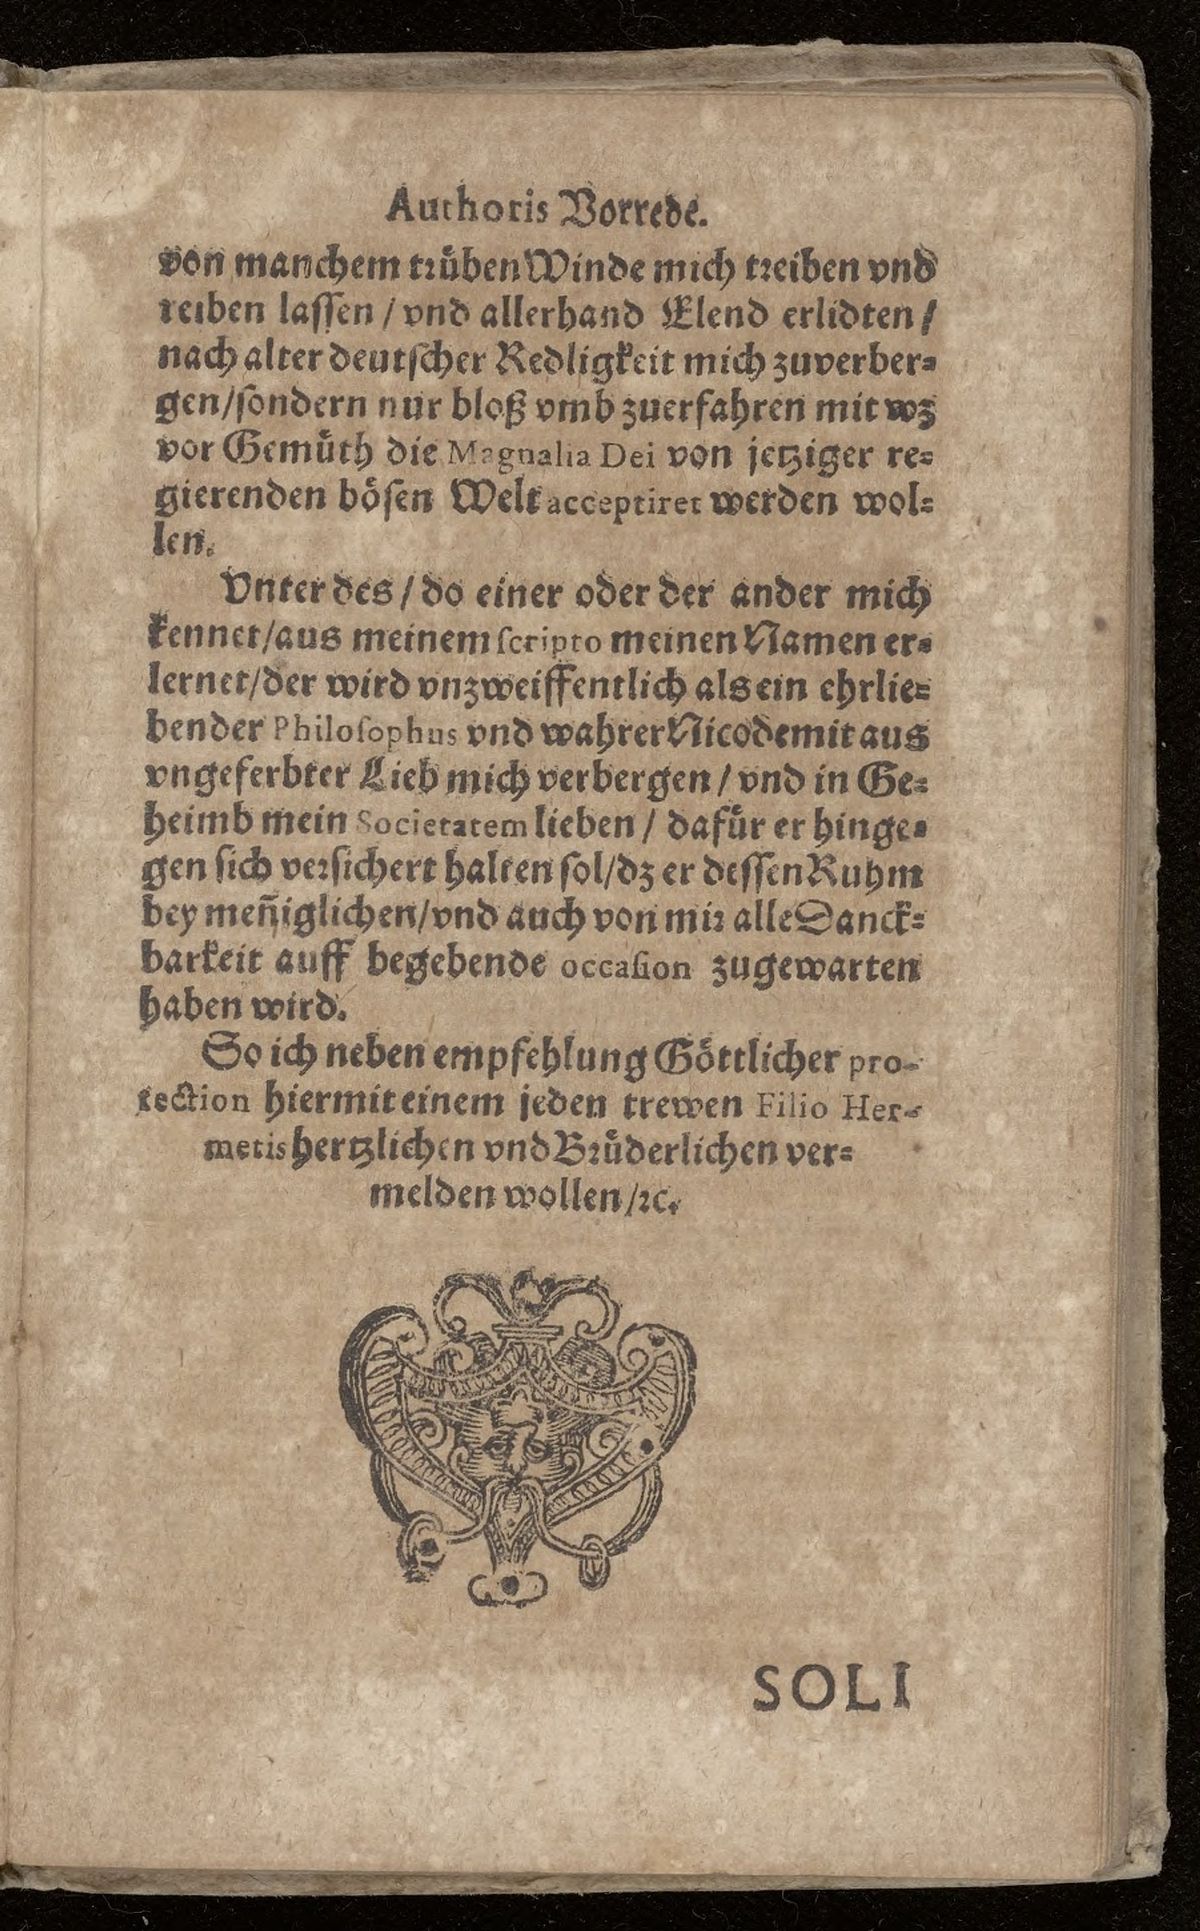 Authoris Vorrede.
von manchem trüben Winde mich treiben vnd
reiben lassen / vnd allerhand Elend erlidten /
nach alter deutscher Redligkeit mich zuverber-
gen / sondern nur bloß vmb zuerfahren mit wz
vor Gemüth die Magnalia Dei von jetziger re-
gierenden bösen Welt acceptiret werden wol-
len.
Vnter des / do einer oder der ander mich
kennet / aus meinem scripto meinen Namen er-
lernet / der wird vnzweiffentlich als ein ehrlie-
bender Philosophus vnd wahrer Nicodemit aus
vngeferbter Lieb mich verbergen / vnd in Ge-
heimb mein Societatem lieben / dafür er hinge-
gen sich versichert halten sol / dz er dessen Ruhm
bey meñiglichen / vnd auch von mir alle Danck-
barkeit auff begebende occasion zugewarten
haben wird.
So ich neben empfehlung Göttlicher pro-
tection hiermit einem jeden trewen Filio Her-
metis hertzlichen vnd Brüderlichen ver-
melden wollen / ꝛc.
SOLI